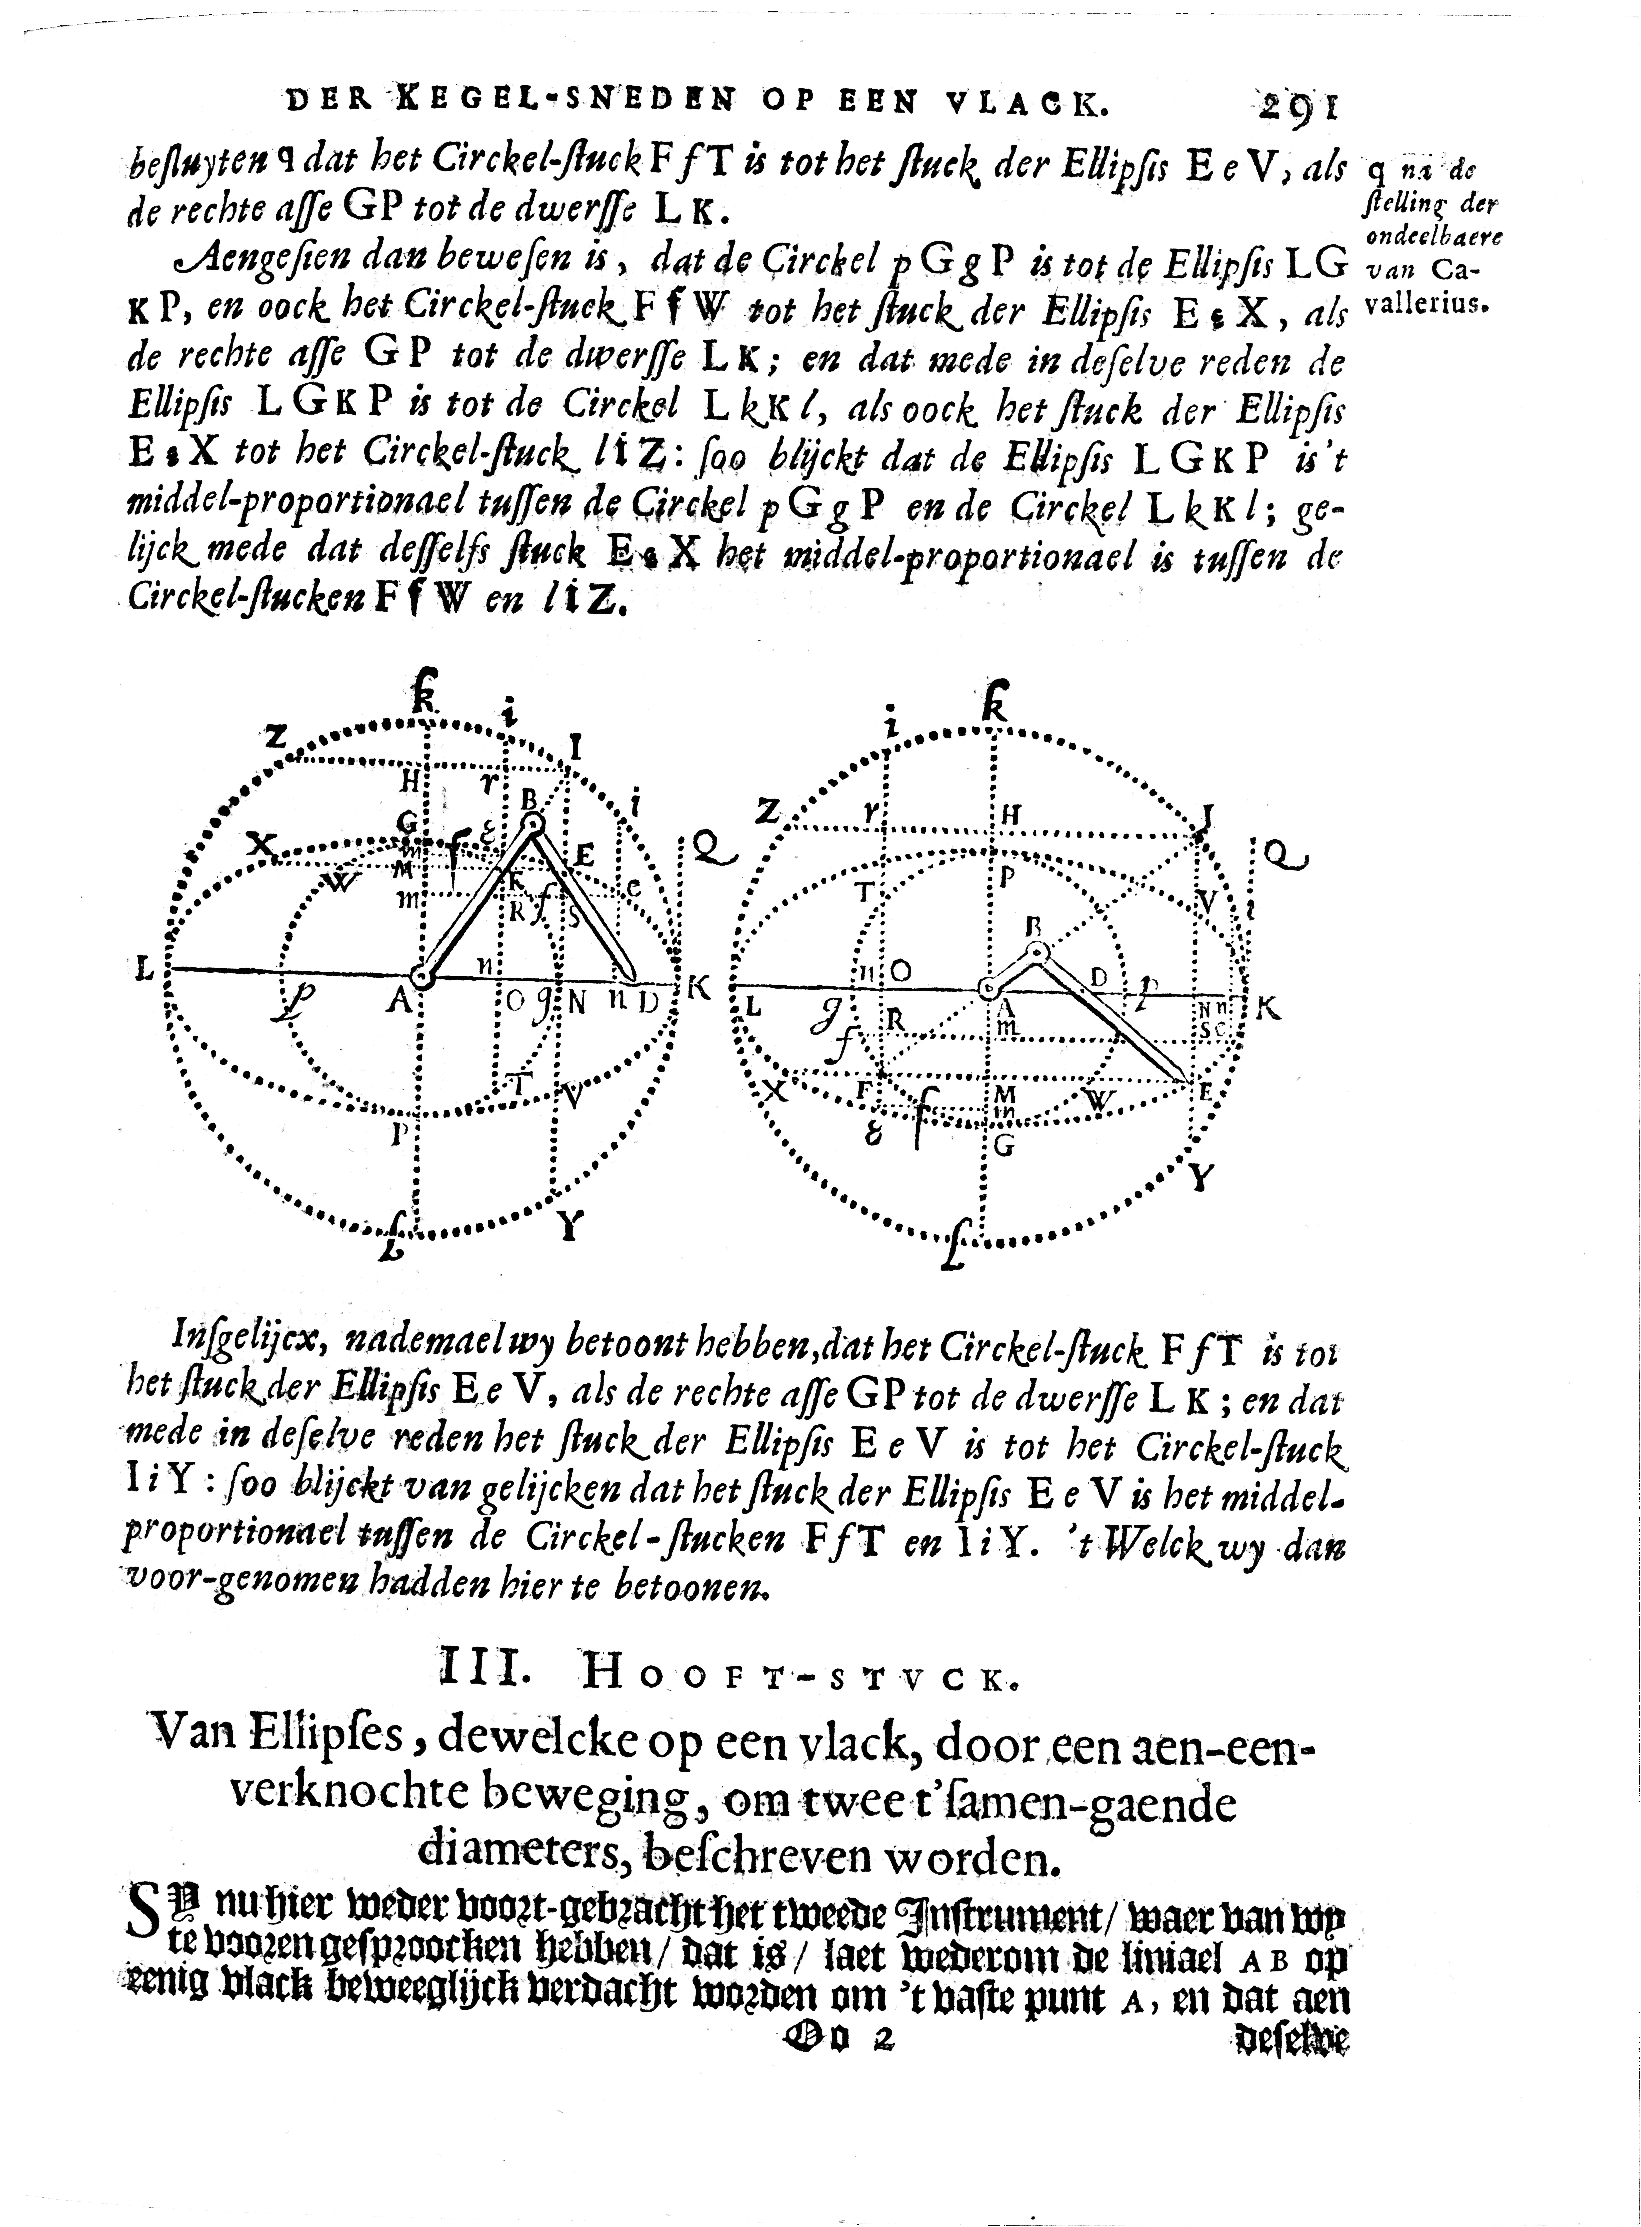 DER KEGEL-SNEDEN OP EEN VLACK. 291
beſluyten q dat het Circkel-ſtuck F f T is tot het ſtuck der Ellipſis E e V, als
de rechte aſſe GP tot de dwerſſe L K.
q na de
ſtelling der
ondeelbaere
van Ca-
vallerius.
Aengeſien dan beweſen is, dat de Circkel p G g P is tot de Ellipſis LG
K P, en oock het Circkel-ſtuck F f W tot het ſtuck der Ellipſis E ε X, als
de rechte aſſe G P tot de dwerſſe L K; en dat mede in deſelve reden de
Ellipſis L G K P is tot de Circkel L k K l, als oock het ſtuck der Ellipſis
E ε X tot het Circkel-ſtuck l i Z: ſoo blijckt dat de Ellipſis L G K P is't
middel-proportionael tuſſen de Circkel p G g P en de Circkel L k K l; ge-
lijck mede dat deſſelfs ſtuck E ε X het middel-proportionael is tuſſen de
Circkel-ſtucken F f W en l i Z.
k i
Z I
H r
B i
G ε Q
X m f E
W M K e
m R f S
L n K
p A O g N n D
T V
P
l Y
i k
Z r H I
Q
T P V i
B
n O D p
L g A N n K
f R m S e
X F M W E
m
ε f G
Y
l
Inſgelijcx, nademael wy betoont hebben, dat het Circkel-ſtuck F f T is tot
het ſtuck der Ellipſis E e V, als de rechte aſſe GP tot de dwerſſe L K; en dat
mede in deſelve reden het ſtuck der Ellipſis E e V is tot het Circkel-ſtuck
I i Y: ſoo blijckt van gelijcken dat het ſtuck der Ellipſis E e V is het middel-
proportionael tuſſen de Circkel-ſtucken F f T en I i Y. 't Welck wy dan
voor-genomen hadden hier te betoonen.
III. HOOFT-STVCK.
Van Ellipſes, dewelcke op een vlack, door een aen-een-
verknochte beweging, om twee t'ſamen-gaende
diameters, beſchreven worden.
SY nu hier weder voort-gebracht het tweede Inſtrument/ waer van wy
te vooren geſproocken hebben/ dat is/ laet wederom de liniael A B op
eenig vlack beweeglijck verdacht worden om 't vaſte punt A, en dat aen
Oo 2 deſelve